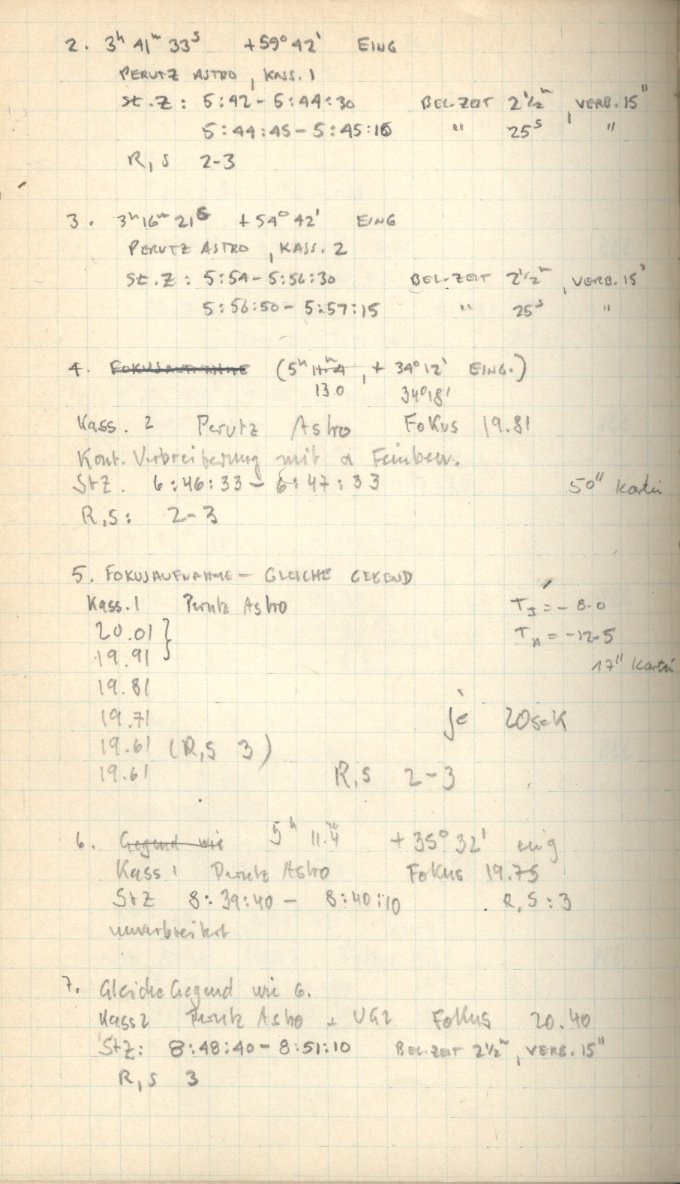 2. 3h 41m 33s +59° 42' EING
PERUTZ ASTRO, KASS. 1
St.Z: 5:42 - 5:44:30 BEL-ZEIT 2 1/2m, VERB. 15"
5:44:45 - 5:45:10 " 25s "
R, S 2-3
3. 3h 16m 21s +54° 42' EING
PERUTZ ASTRO, KASS. 2
St.Z: 5:54 - 5:56:30 BEL-ZEIT 2 1/2m, VERB. 15"
5:56:50 - 5:57:15 " 25s "
4. FOKUSAUFNAHME (5h 11m4, + 34° 12' EING.)
13.0 34°18'
Kass. 2 Perutz Astro Fokus 19.81
Kont. Verbreiterung mit α Feinbew.
StZ. 6:46:33 - 6:47:33 50"
R,S: 2-3
5. FOKUSAUFNAHME - GLEICHE GEGEND
Kass. 1 Perutz Astro
20.01 } = -8.0
19.91 = -12.5
17"
19.81
19.71 je 20sek
19.61 (R,S 3)
19.61 R,S 2-3
6. Gegend wie 5h 11.m4 +35° 32' eing
Kass 1 Perutz Astro Fokus 19.75
StZ 8:39:40 - 8:40:10 R,S: 3
unverbreitert
7. Gleiche Gegend wie 6.
Kass 2 Perutz Astro + UG2 Fokus 20.40
StZ: 8:48:40 - 8:51:10 BEL-ZEIT 2 1/2m, VERB. 15"
R, S 3